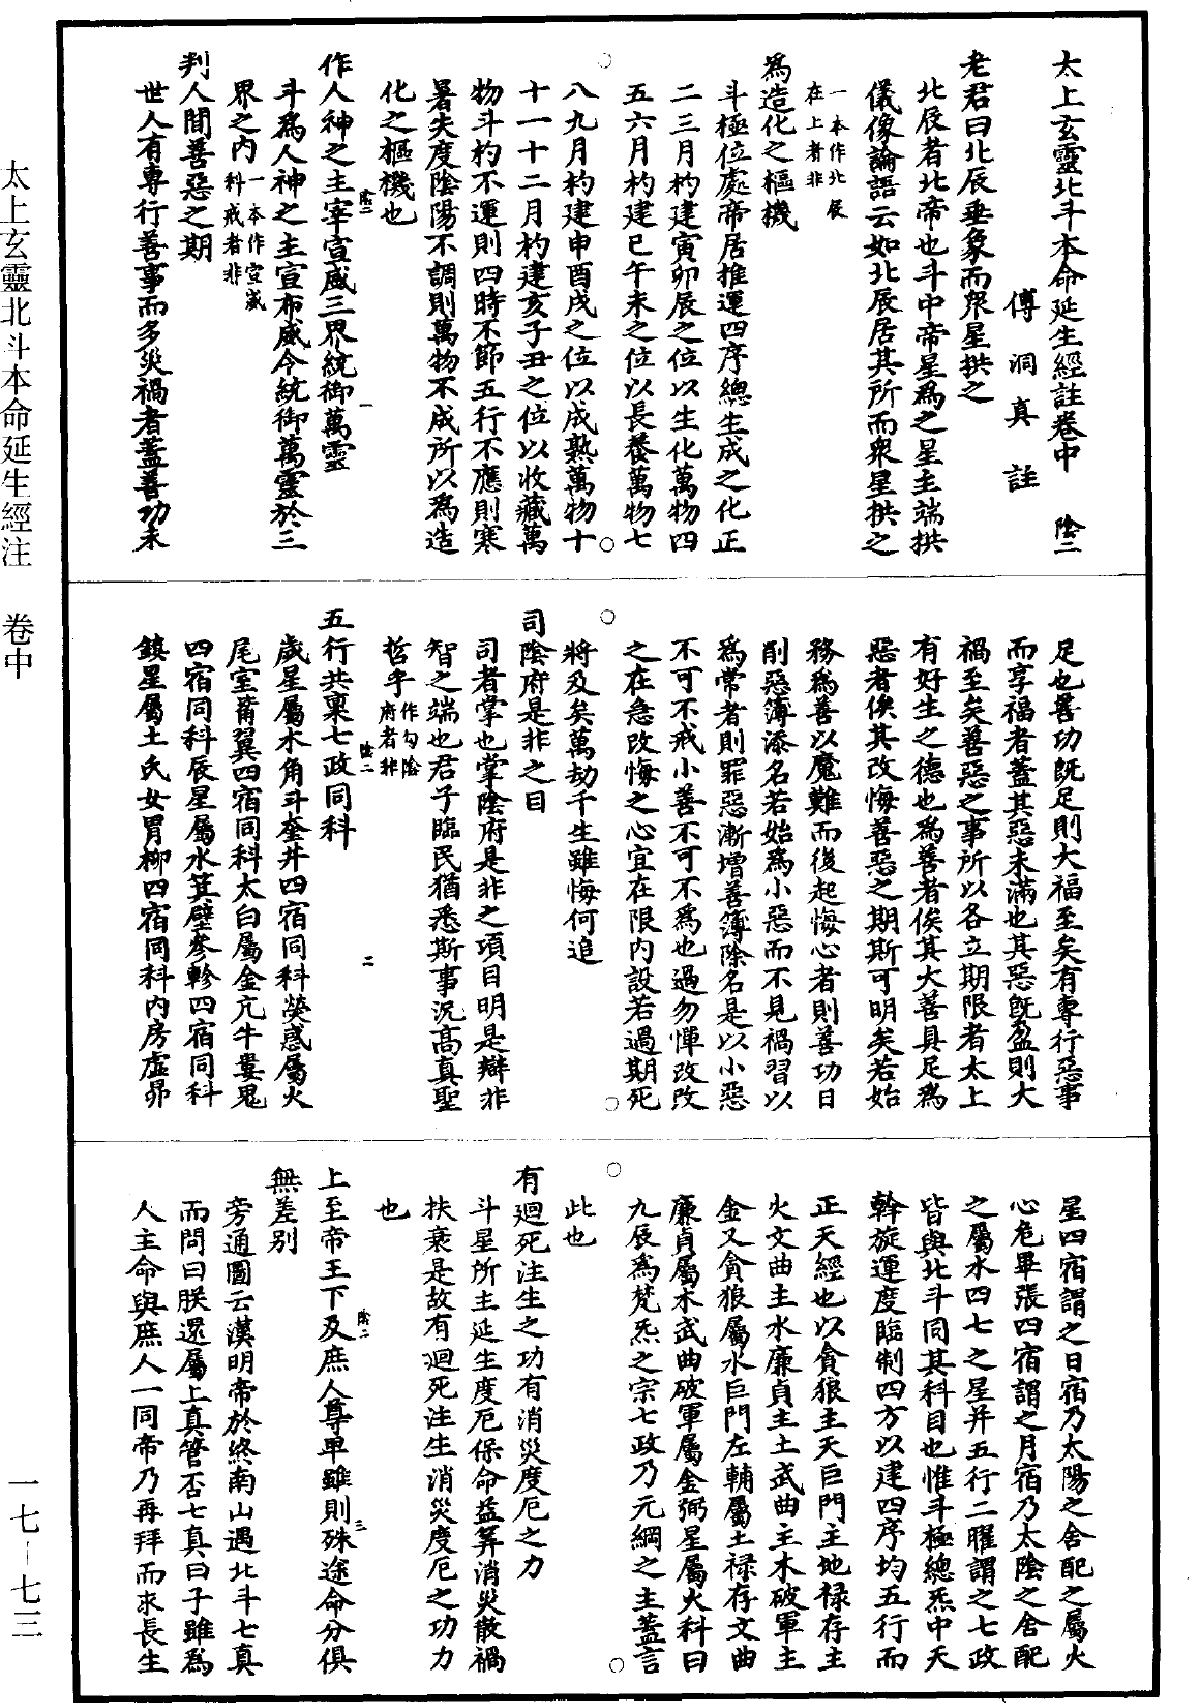 太上玄靈北斗本命延生經註卷中　陰二
傅洞真註
老君曰北辰垂象而衆星拱之
北辰者北帝也斗中帝星爲之星主端拱
儀像論語云如北辰居其所而衆星拱之
一本作北辰
在上者非
爲造化之樞機
斗極位處帝居推運四序總生成之化正
二三月杓建寅卯辰之位以生化萬物四
五六月杓建巳午未之位以長養萬物七
八九月杓建申酉戌之位以成熟萬物十
十一十二月杓建亥子丑之位以收藏萬
物斗杓不運則四時不節五行不應則寒
暑失度陰陽不調則萬物不成所以爲造
化之樞機也
陰二　一
作人神之主宰宣威三界統御萬靈
斗爲人神之主宣布威令統御萬靈於三
界之內一本作宣威
科戒者非
判人間善惡之期
世人有專行善事而多災禍者蓋善功未
足也善功旣足則大福至矣有專行惡事
而享福者蓋其惡未滿也其惡旣盈則大
禍至矣善惡之事所以各立期限者太上
有好生之德也爲善者俟其大善具足爲
惡者俟其改悔善惡之期斯可明矣若始
務爲善以魔難而後起悔心者則善功日
削惡簿添名若始爲小惡而不見禍習以
爲常者則罪惡漸增善簿除名是以小惡
不可不戒小善不可不爲也過勿憚改改
之在急改悔之心宜在限內設若過期死
將及矣萬劫千生雖悔何追
司陰府是非之目
司者掌也掌陰府是非之項目明是辯非
智之端也君子臨民猶悉斯事況高真聖
哲乎作勾陰
府者非
陰二　二
五行共稟七政同科
歲星屬木角斗奎井四宿同科熒惑屬火
尾室觜翼四宿同科太白屬金亢牛婁鬼
四宿同科辰星屬水箕壁參軫四宿同科
鎮星屬土氐女胃柳四宿同科內房虛昴
星四宿謂之日宿乃太陽之舍配之屬火
心危畢張四宿謂之月宿乃太陰之舍配
之屬水四七之星并五行二曜謂之七政
皆與北斗同其科目也惟斗極總炁中天
斡旋運度臨制四方以建四序均五行而
正天經也以貪狼主天巨門主地祿存主
火文曲主水廉貞主土武曲主木破軍主
金又貪狼屬水巨門左輔屬土祿存文曲
廉貞屬木武曲破軍屬金弼星屬火科曰
九辰爲梵炁之宗七政乃元綱之主蓋言
此也
有廻死注生之功有消災度厄之力
斗星所主延生度厄保命益筭消災散禍
扶衰是故有廻死注生消災度厄之功力
也
陰二　三
上至帝王下及庶人尊卑雖則殊途命分俱
無差別
旁通圖云漢明帝於終南山遇北斗七真
而問曰朕還屬上真管否七真曰子雖爲
人主命與庶人一同帝乃再拜而求長生
太上玄靈北斗本命延生經注　卷中
一七—七三